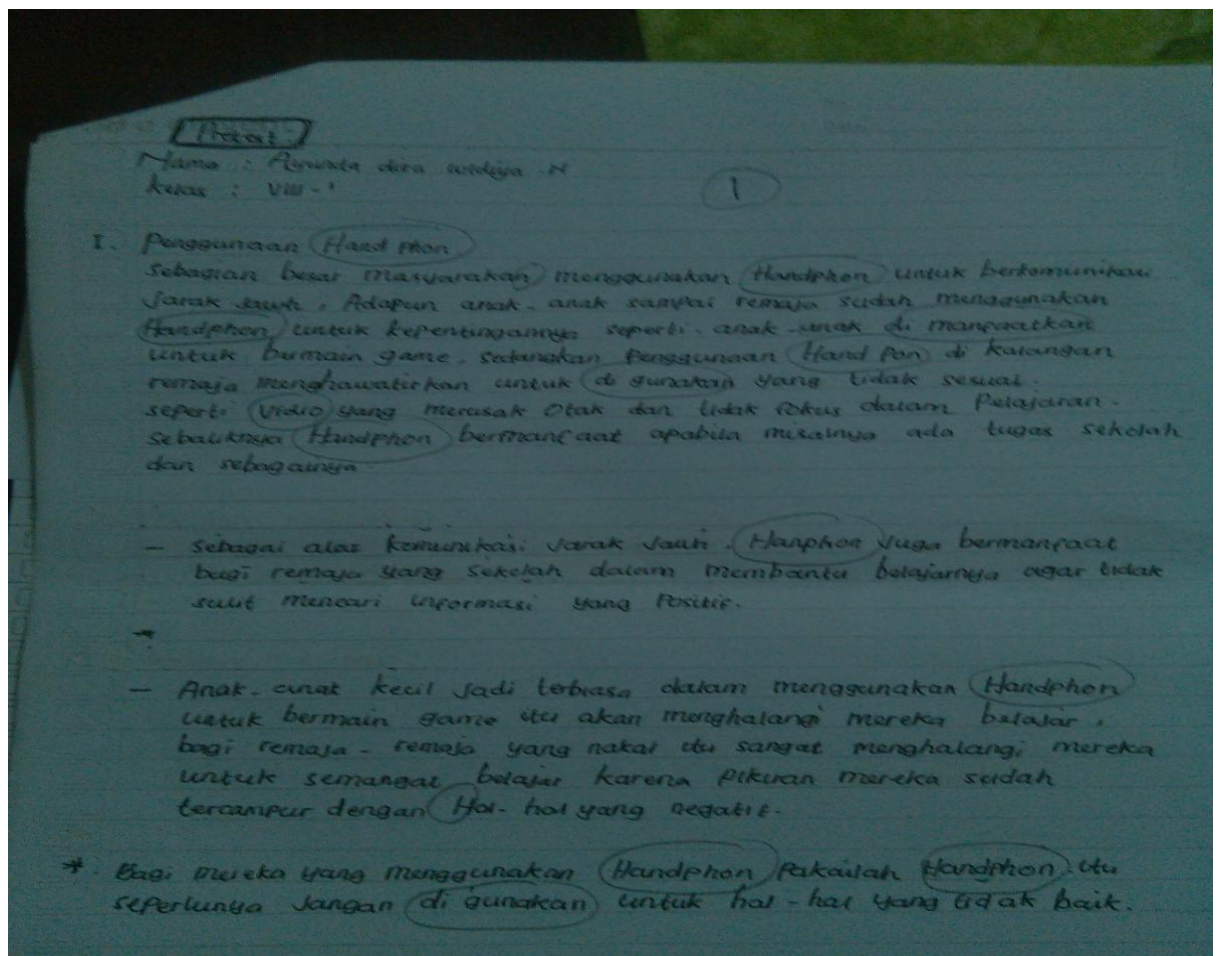 Pretest
Nama : Ayunda dira widiya .N
Kelas : VIII - 1
1
I. Penggunaan Hand phon
Sebagian besar masyarakan menggunakan Handphon untuk berkomunikasi
Jarak Jauh. Adapun anak-anak sampai remaja sudah menggunakan
Handphon untuk kepentingannya seperti. anak-anak di manfaatkan
untuk bermain game. sedangkan Penggunaan Hand Pon di kalangan
remaja menghawatirkan untuk di gunakan yang tidak sesuai.
seperti Vidio yang merusak Otak dan tidak fokus dalam Pelajaran.
Sebaliknya Handphon bermanfaat apabila misalnya ada tugas sekolah
dan sebagainya.
- Sebagai alat komunikasi Jarak Jauh. Hanphon Juga bermanfaat
bagi remaja yang Sekolah dalam membantu belajarnya agar tidak
sulit mencari informasi yang Positif.
- Anak-anak kecil Jadi terbiasa dalam menggunakan Handphon
untuk bermain game itu akan menghalangi mereka belajar,
bagi remaja - remaja yang nakal itu sangat menghalangi mereka
untuk semangat belajar karena Pikiran mereka sudah
tercampur dengan Hal-hal yang negatif.
* Bagi mereka yang menggunakan Handphon Pakailah Handphon itu
seperlunya Jangan di gunakan untuk hal-hal yang tidak baik.